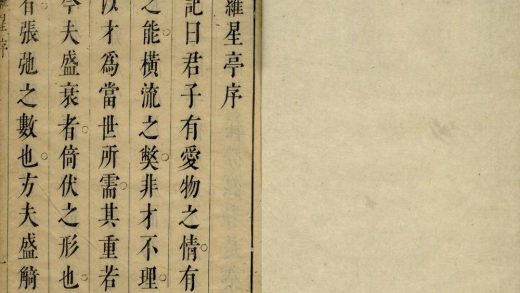 羅星亭序
記曰君子有愛物之情有
之能橫流之獘非才不理
以才爲當世所需其重若
今夫盛衰者倚伏之形也
有張弛之數也方夫盛觭